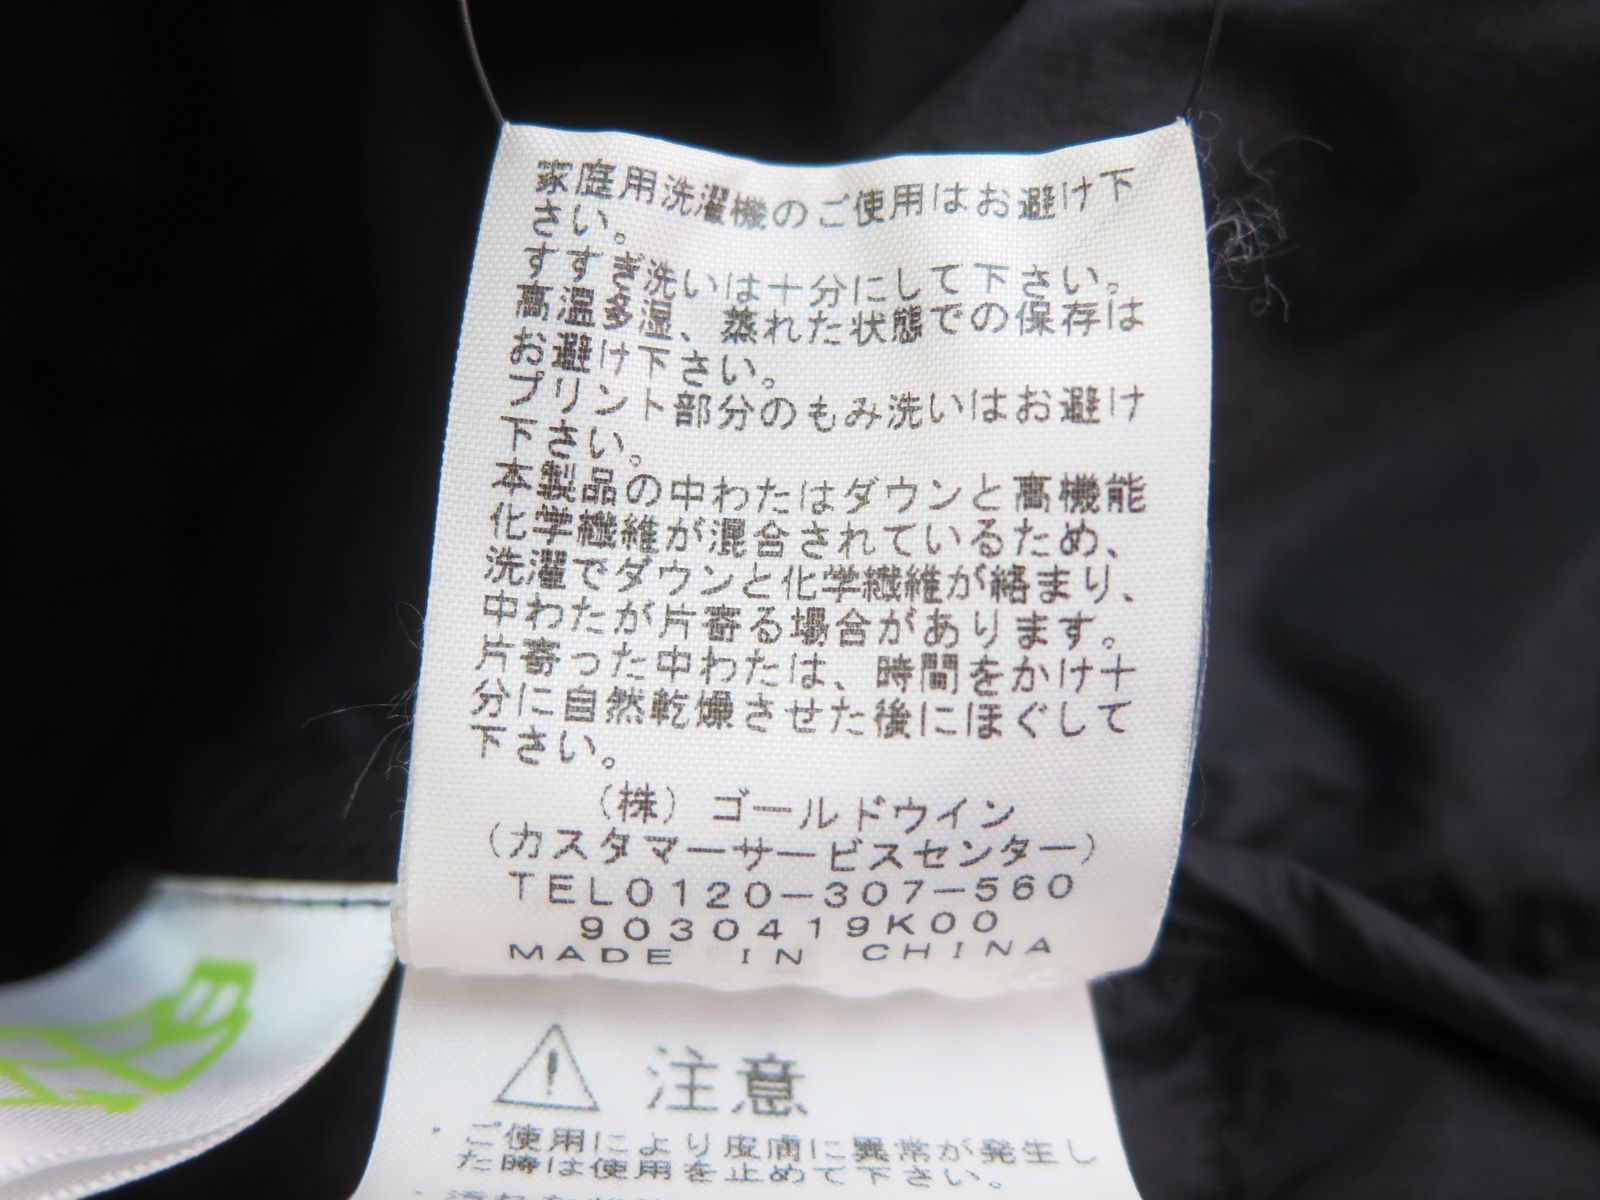 家庭用洗濯機のご使用はお避け下
さい。
すすぎ洗いは十分にして下さい。
高温多湿、蒸れた状態での保存は
お避け下さい。
プリント部分のもみ洗いはお避け
下さい。
本製品の中わたはダウンと高機能
化学繊維が混合されているため、
洗濯でダウンと化学繊維が絡まり、
中わたが片寄る場合があります。
片寄った中わたは、時間をかけ十
分に自然乾燥させた後にほぐして
下さい。
(株)ゴールドウイン
(カスタマーサービスセンター)
TEL0120-307-560
9030419K00
MADE IN CHINA
注意
・ご使用により皮膚に異常が発生し
た時は使用を止めて下さい。